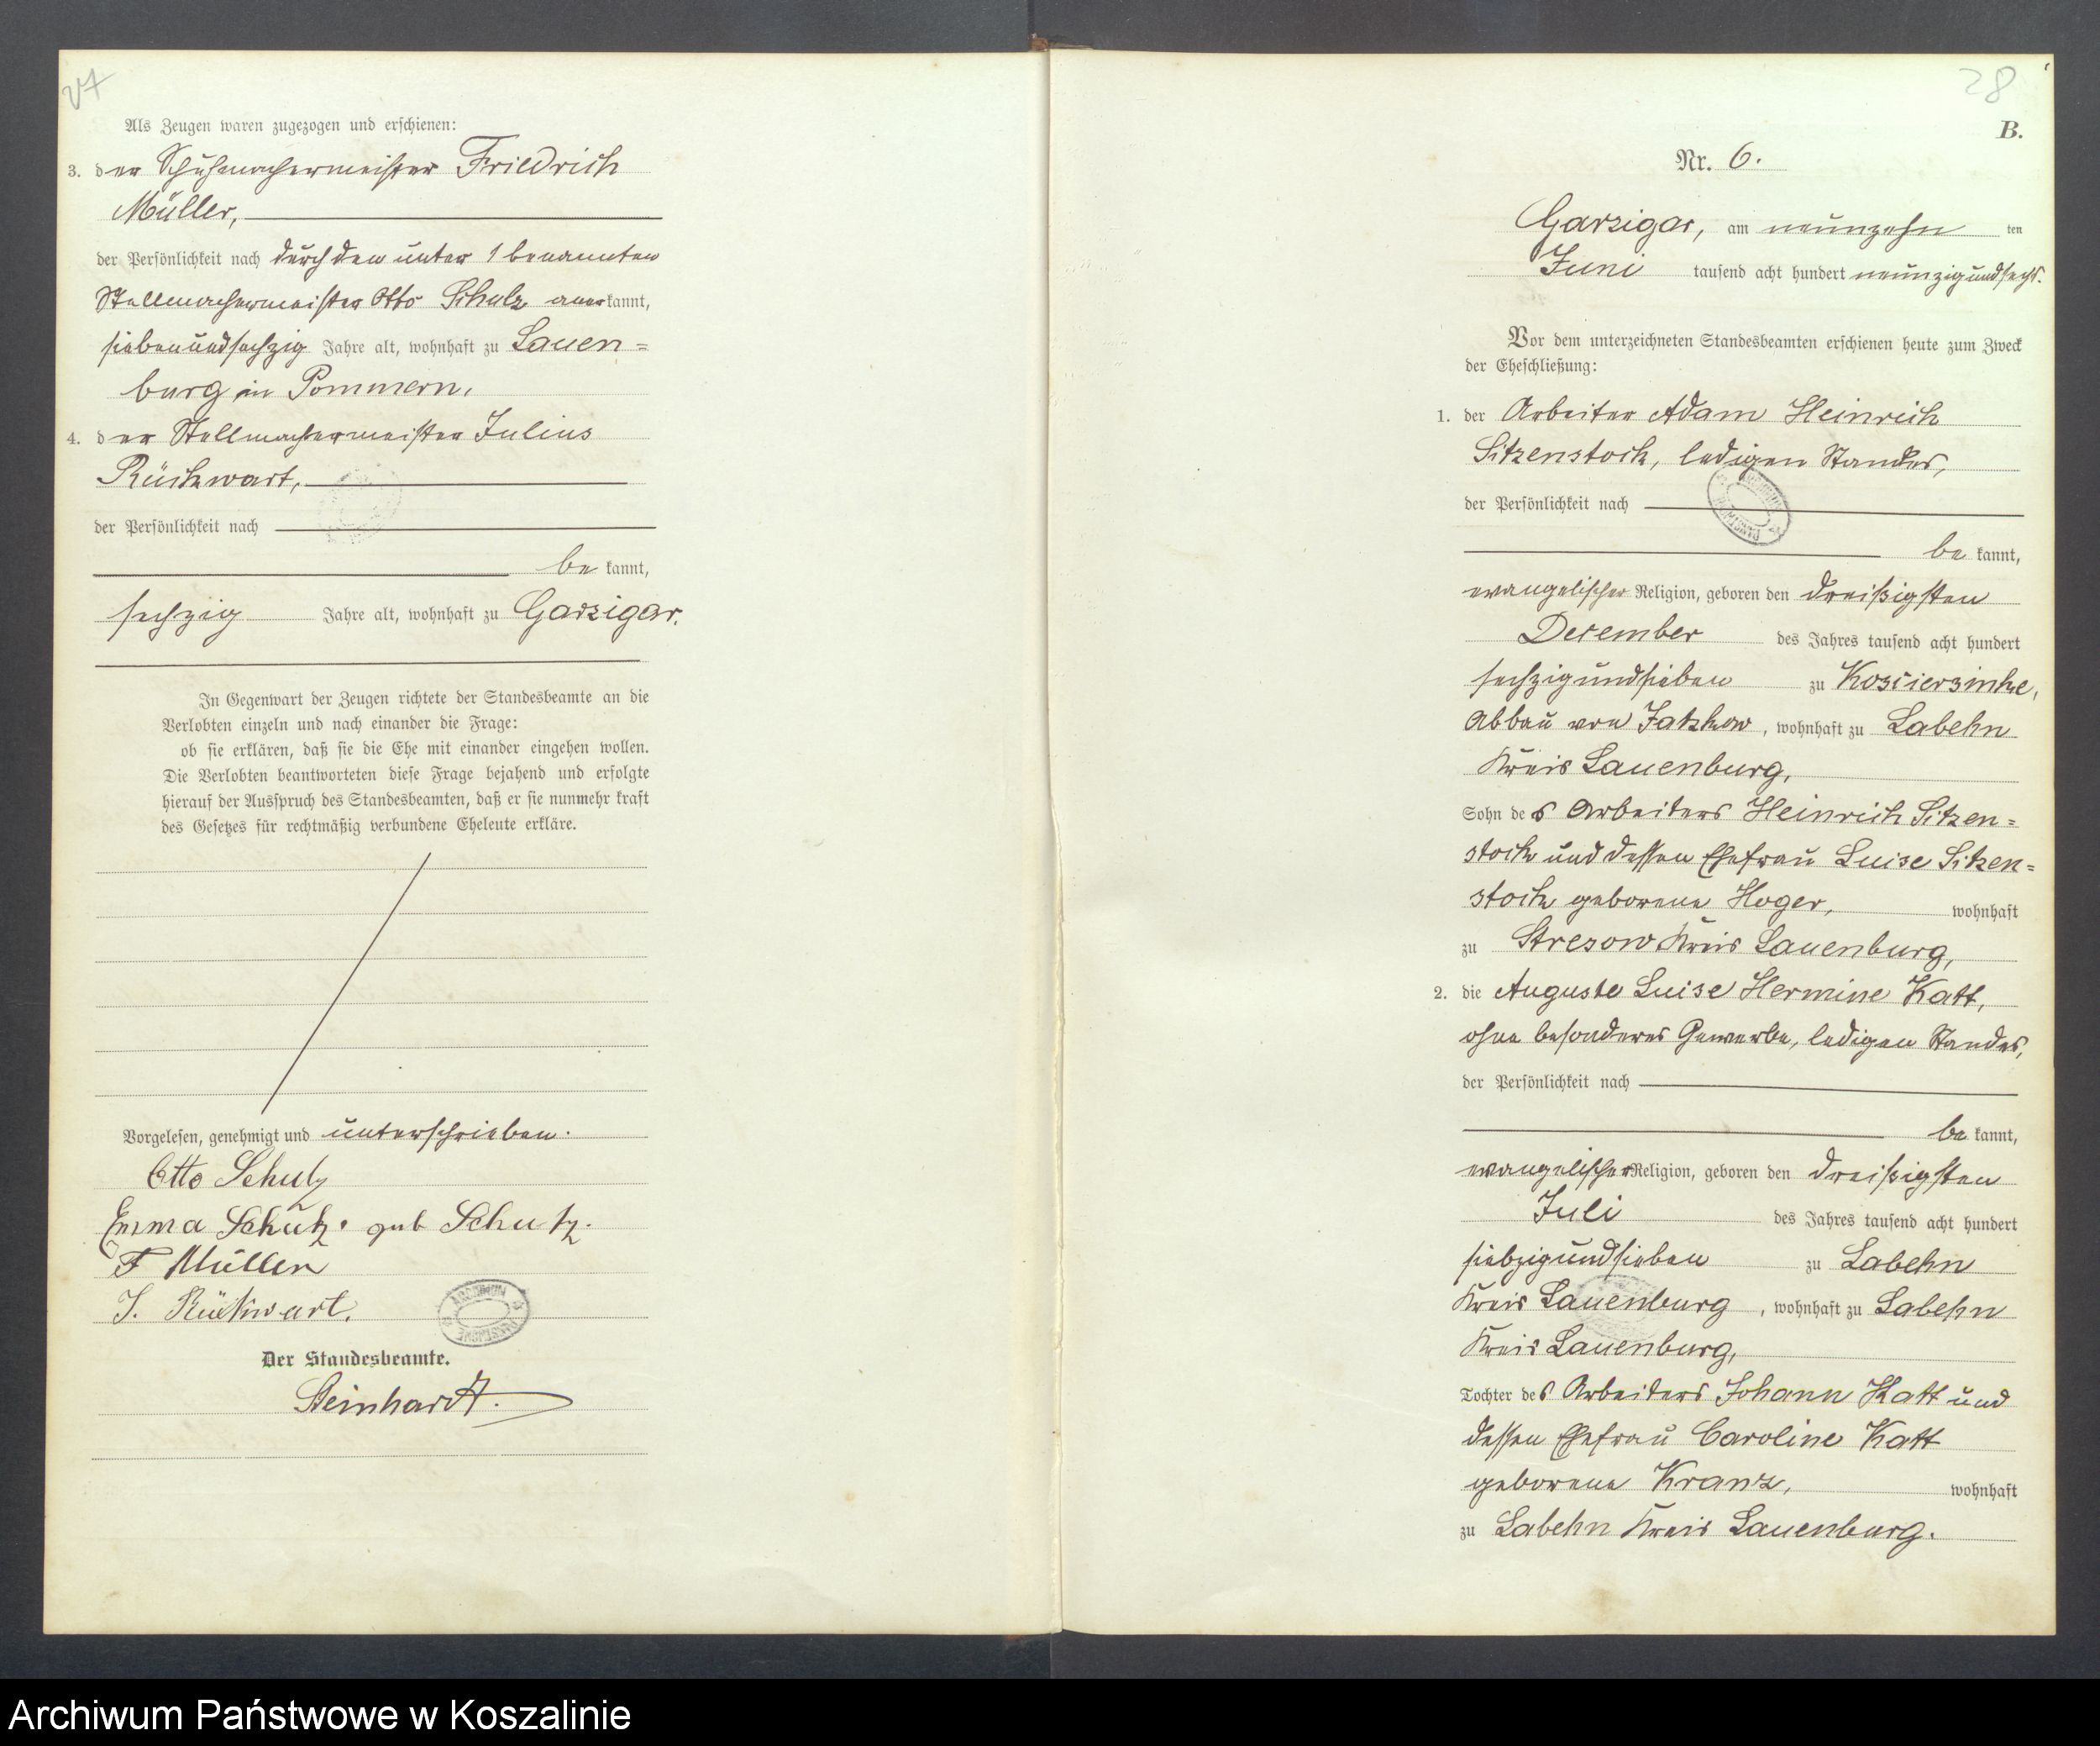 27
Als Zeugen waren zugezogen und erschienen:
3. der Schuhmachermeister Friedrich
Müller,
der Persönlichkeit nach durch den unter 1 benannten
Stellmachermeister Otto Schulz anerkannt,
siebenundsechzig Jahre alt, wohnhaft zu Lauen=
burg in Pommern.
4. der Stellmachermeister Julius
Rückwart,
der Persönlichkeit nach
be kannt,
sechzig Jahre alt, wohnhaft zu Garzigar.
In Gegenwart der Zeugen richtete der Standesbeamte an die
Verlobten einzeln und nach einander die Frage:
ob sie erklären, daß sie die Ehe mit einander eingehen wollen.
Die Verlobten beantworteten diese Frage bejahend und erfolgte
hierauf der Ausspruch des Standesbeamten, daß er sie nunmehr kraft
des Gesetzes für rechtmäßig verbundene Eheleute erkläre.
Vorgelesen, genehmigt und unterschrieben.
Otto Schulz
Emma Schulz geb Schulz.
F Müller
J. Rückwart.
Der Standesbeamte.
Steinhardt.
28
B.
Nr. 6.
Garzigar, am neunzehn ten
Juni tausend acht hundert neunzig und sechs.
Vor dem unterzeichneten Standesbeamten erschienen heute zum Zweck
der Eheschließung:
1. der Arbeiter Adam Heinrich
Sitzenstock, ledigen Standes,
der Persönlichkeit nach
be kannt,
evangelischer Religion, geboren den dreißigsten
Dezember des Jahres tausend acht hundert
sechzig und sieben zu Koscierzinke,
Abbau von Jatzkow, wohnhaft zu Labehn
Kreis Lauenburg,
Sohn des Arbeiters Heinrich Sitzen=
stock und dessen Ehefrau Luise Sitzen=
stock geborene Hoger, wohnhaft
zu Stresow Kreis Lauenburg,
2. die Auguste Luise Hermine Katt,
ohne besonderes Gewerbe, ledigen Standes,
der Persönlichkeit nach
be kannt,
evangelischer Religion, geboren den dreißigsten
Juli des Jahres tausend acht hundert
siebzig und sieben zu Labehn
Kreis Lauenburg, wohnhaft zu Labehn
Kreis Lauenburg,
Tochter des Arbeiters Johann Katt und
dessen Ehefrau Caroline Katt
geborene Kranz, wohnhaft
zu Labehn Kreis Lauenburg.
Archiwum Państwowe w Koszalinie